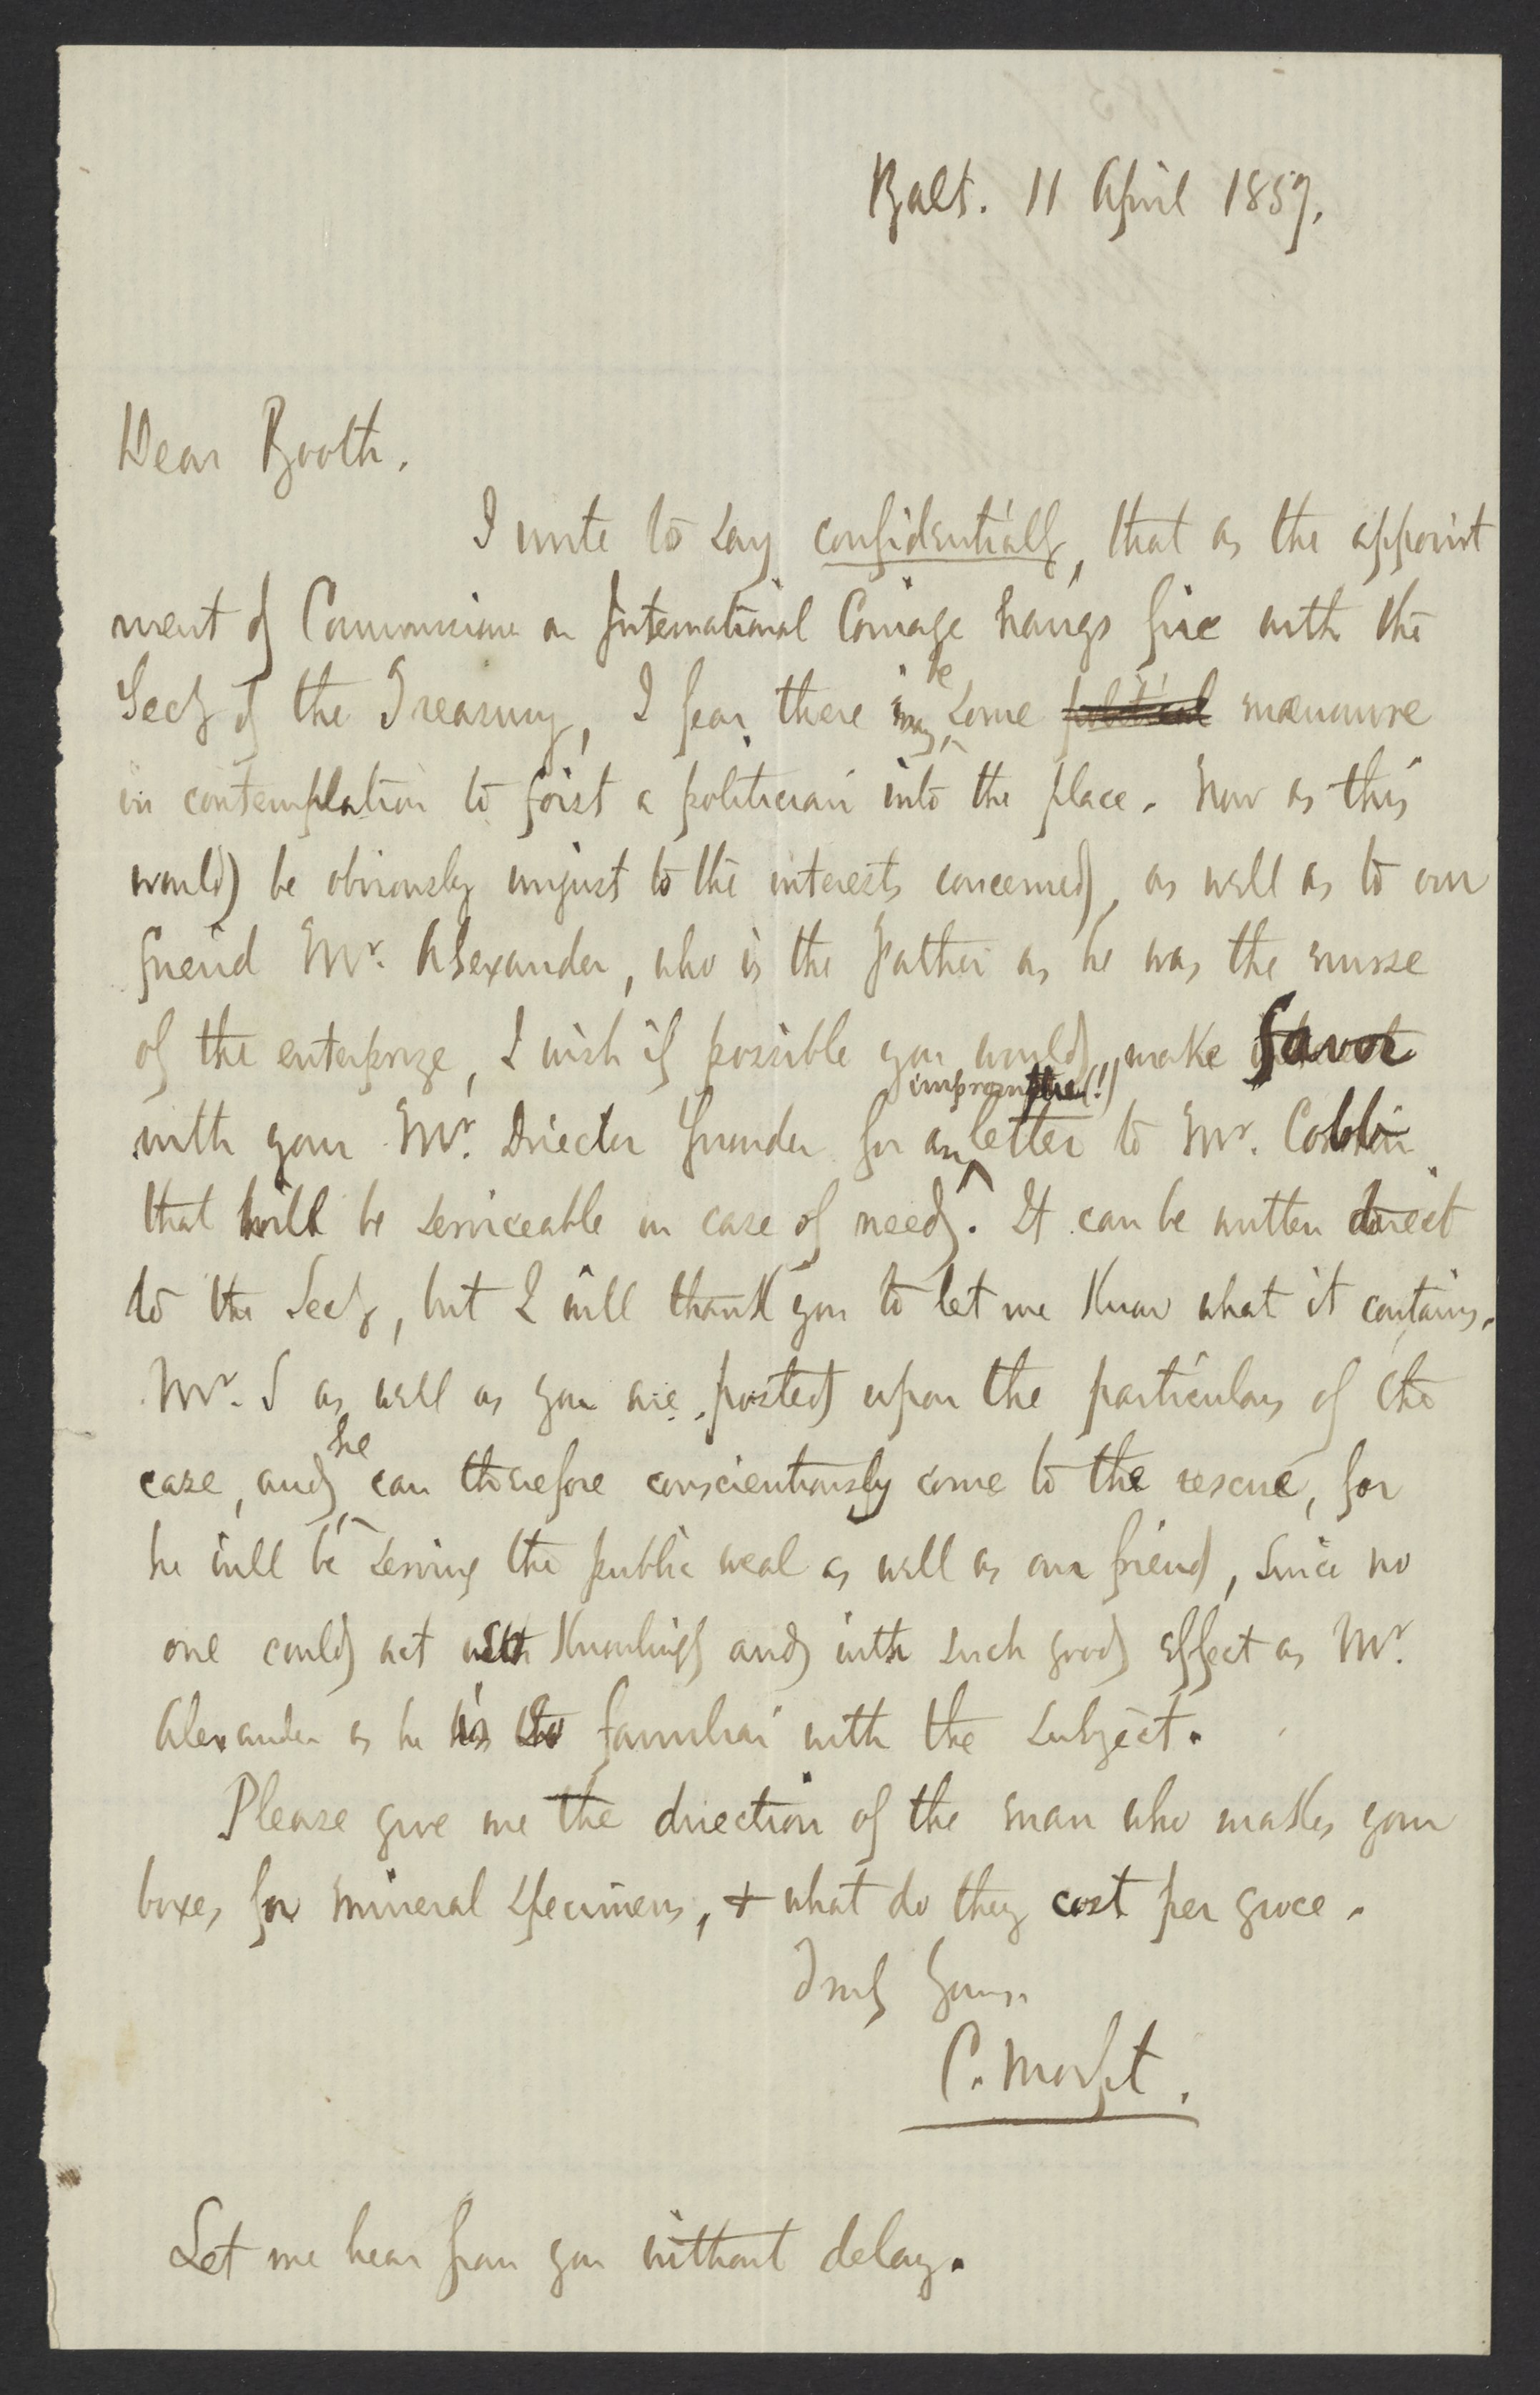 Balt. 11 April 1857.
Dear Booth.
I write to say confidentially, that as the appoint
ment of Commissioner on International Coinage hangs fire with the
Secy of the Treasury, I fear there may be some political manœuvre
in contemplation to foist a politician into the place. Now as this
would be obviously unjust to the interests concerned, as well as to our
friend Mr. Alexander, who is the father as he was the nurse
of the enterprize, I wish if possible you would, make favor
with your Mr. Director Snowden for an impromptu (!) letter to Mr. Cobb
that will be serviceable in case of need. It can be written direct
to the Secy, but I will thank you to let me know what it contains.
Mr. S as well as you are posted upon the particulars of the
case, and he can therefore conscientiously come to the rescue, for
he will be serving the public weal as well as our friend, since no
one could act so knowingly and with such good effect as Mr.
Alexander as he is so familiar with the subject.
Please give me the direction of the man who makes your
boxes for mineral specimens, & what do they cost per groce.
Truly Yours.
C. Morfit.
Let me hear from you without delay.